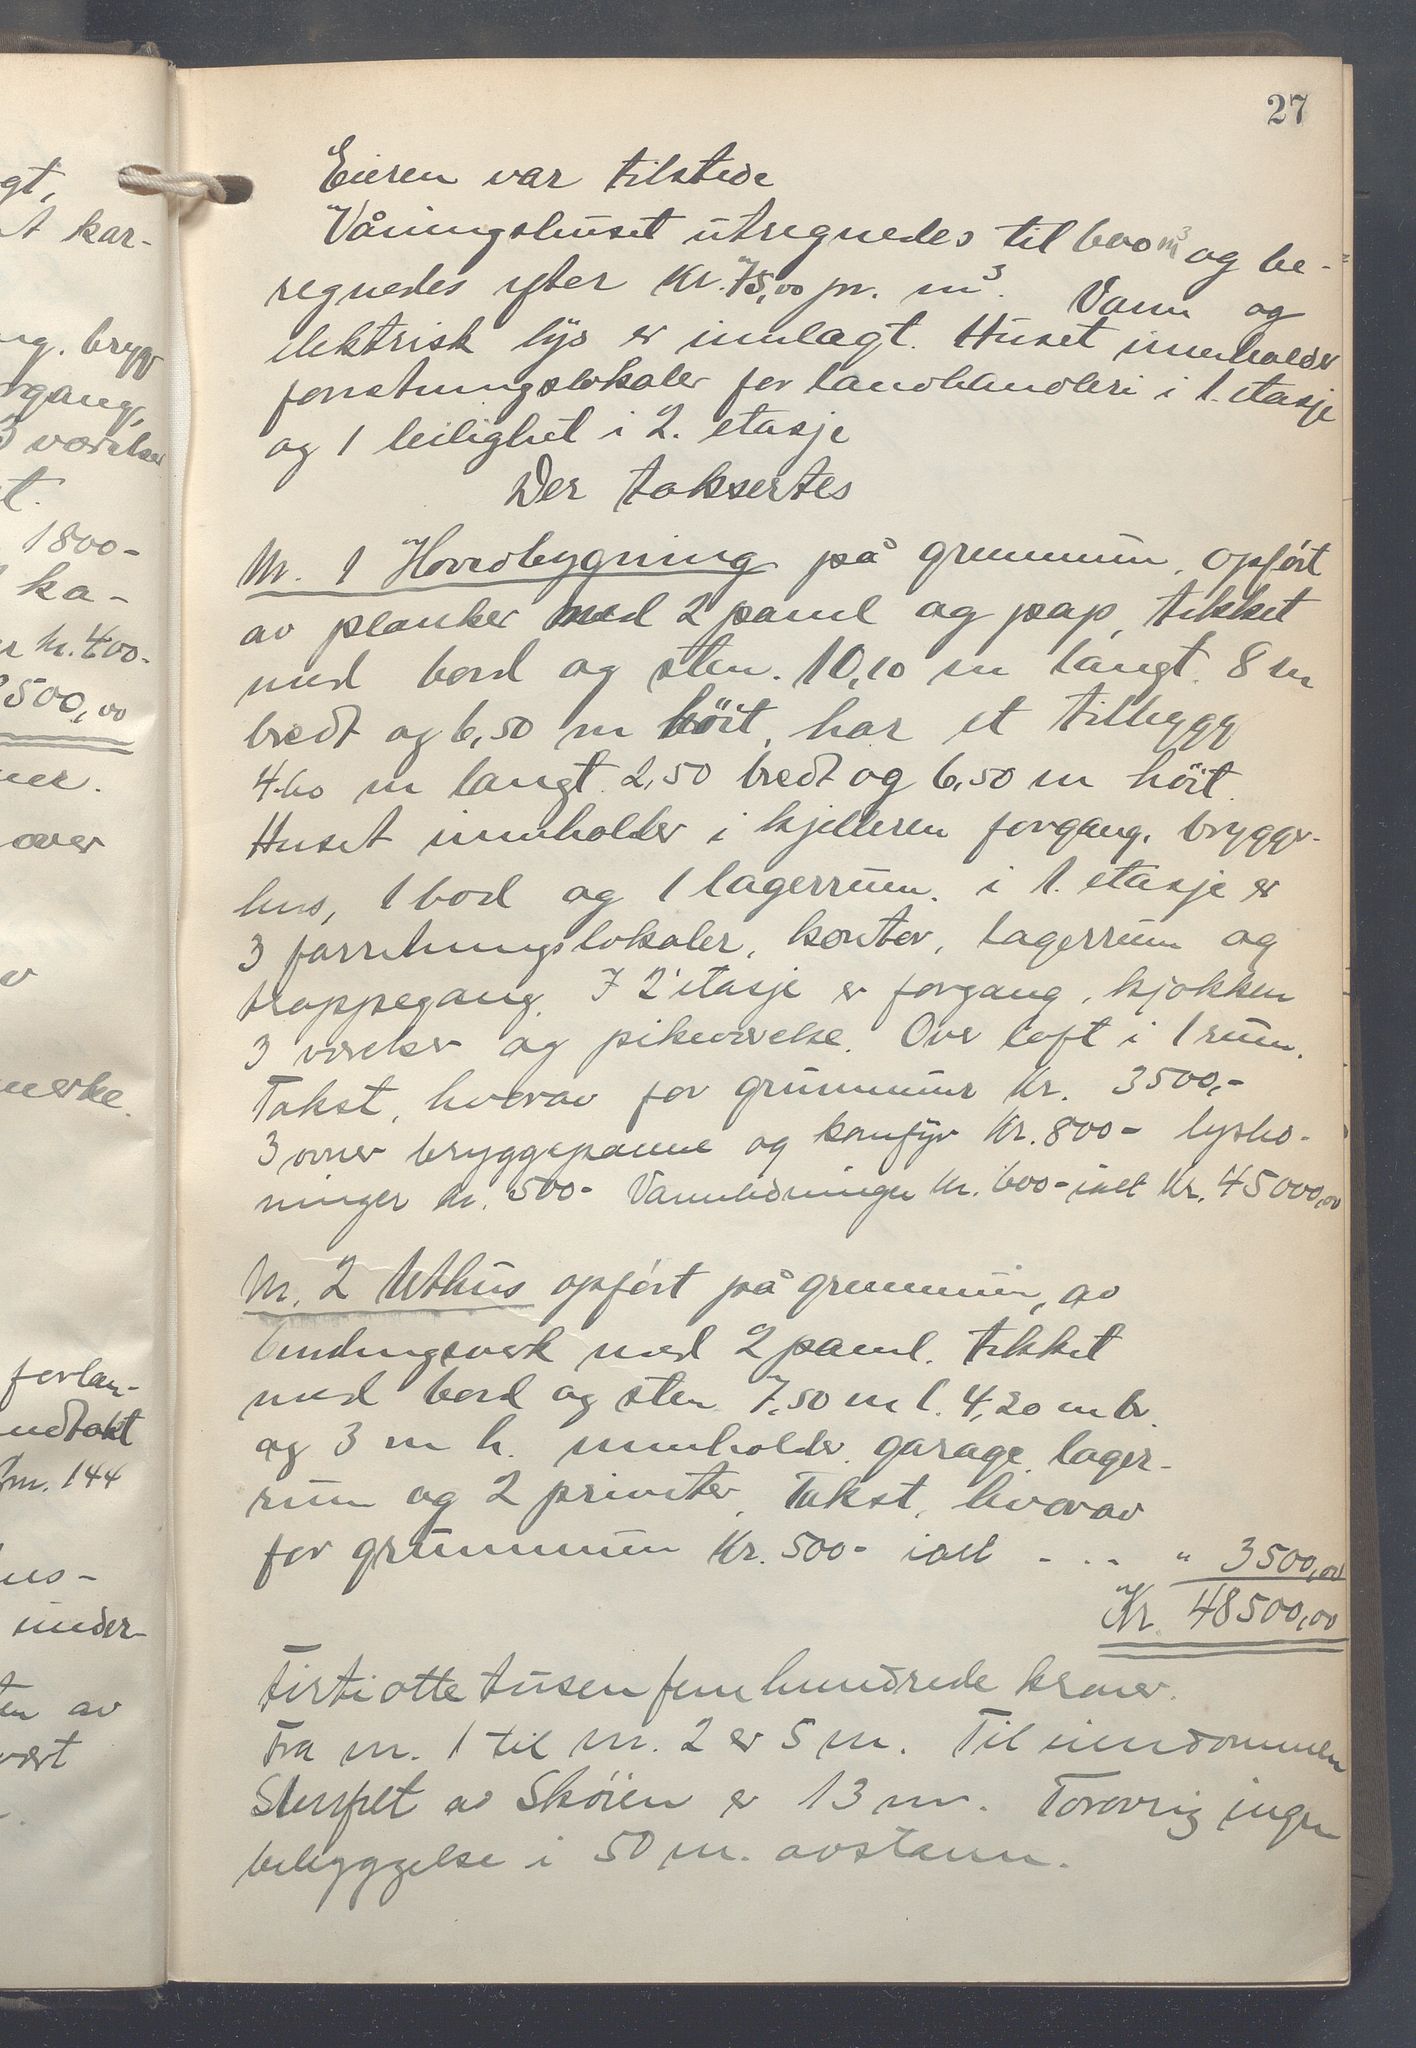 27
Eieren var tilstede
Våningshuset utregnedes til 600 m³ og be-
regnedes efter Kr. 75,00 pr. m³. Vann og
elektrisk lys er innlagt. Huset inneholder
forretningslokaler for landhandleri i 1. etasje
og 1 leilighet i 2. etasje
Der taksertes
Nr. 1 Hovedbygning på grunnmur, opført
av planker med 2 panel og pap, tekket
med bord og sten. 10,10 m langt. 8 m
bredt og 6,50 m höit, har et tilbygg
4.60 m langt. 2,50 bredt og 6,50 m höit.
Huset inneholder i kjelleren forgang, brygger-
hus, 1 bod og 1 lagerrum. i 1. etasje er
3 forretningslokaler, kontor, lagerrum og
trappegang. I 2 etasje er forgang, kjøkken
3 værelser og pikeværelse. Over loft i 1 rum.
Takst, hvorav for grunnmur Kr. 3500,-
3 ovner bryggepanne og komfyr Kr. 800- lysled-
ninger kr. 500- Vannledninger kr. 600- ialt Kr. 45000,00
Nr. 2 Uthus opført på grunnmur, av
bindingsverk med 2 panel. tekket
med bord og sten 7,50 m l. 4,20 m br.
og 3 m h. inneholder garage, lager-
rum og 2 priveter, Takst, hvorav
for grunnmur Kr. 500- ialt - . . - " 3500,00
Kr. 48500,00
Førtiotte tusen fem hundrede kroner.
Fra nr. 1 til nr. 2 er 5 m. Til eiendommen
av Skøien er 13 m. Forøvrig ingen
bebyggelse i 50 m. avstann.
gt,
t kar-
ng. brygg
rgang,
3 værelser
t.
1800-
ka-
kr. 400-
500,00
ner.
over
merke.
forlan-
nr. 144
under-
av
vert